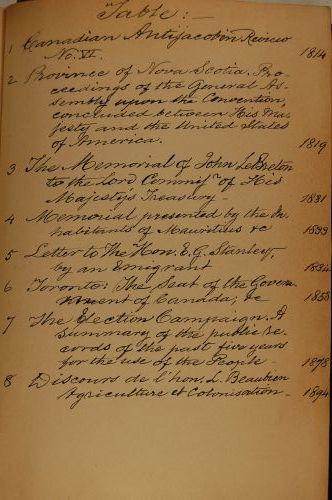 Table:-
1 Canadian Antijacobin Review
No. VI. 1814
2 Province of Nova Scotia. Pro-
ceedings of the General As-
sembly upon the Convention,
concluded between His Ma-
jesty and the United States
of America. 1819
3 The Memorial of John LeBreton
to the Lord Commiss.rs of His
Majesty's Treasury- 1831
4 Memorial presented by the In-
habitants of Mauritius &c 1833
5 Letter to The Hon. E.G. Stanley,
by an Emigrant 1834
6 Toronto: The Seat of the Govern-
ment of Canada; &c 1858
7 The Election Campaign. A
Summary of the public re-
cords of the past five years
for the use of the People- 1878
8 Discours de l'hon. L. Beaubien
Agriculture et Colonisation- 1894